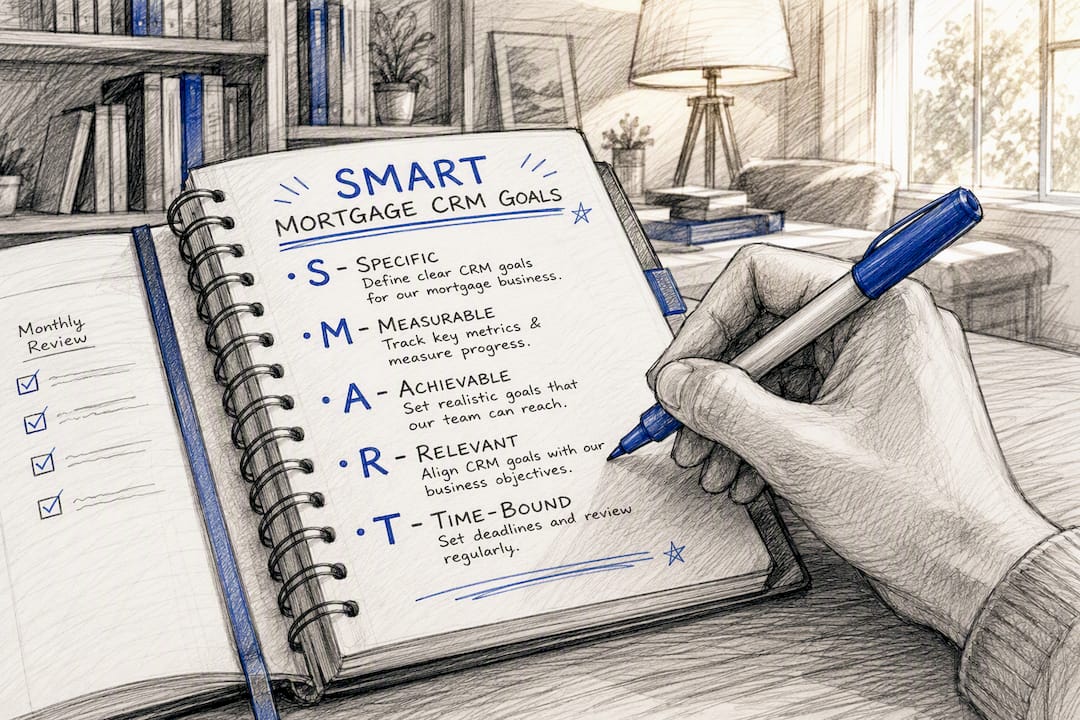 Monthly
Review
SMART
MORTGAGE CRM GOALS
• S - SPECIFIC
Define clear CRM goals
for our mortgage business.
• M - MEASURABLE
Track key metrics &
measure progress.
• A - ACHIEVABLE
Set realistic goals that
our team can reach.
• R - RELEVANT
Align CRM goals with our
business objectives.
• T - TIME-BOUND
Set deadlines and review
regularly.